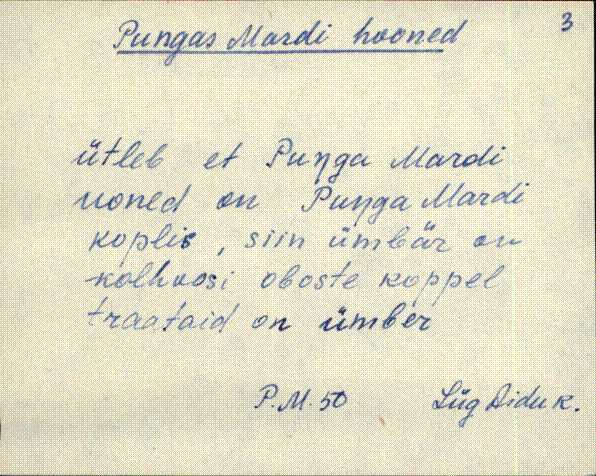 3
Pungas Mardi hooned
ütleb et Puŋga Mardi
uoned on Puŋga Mardi
koplis, siin ümbär on
kolhoosi oboste koppel
traataid on ümber
P.M. 50 Lüg Aidu k.